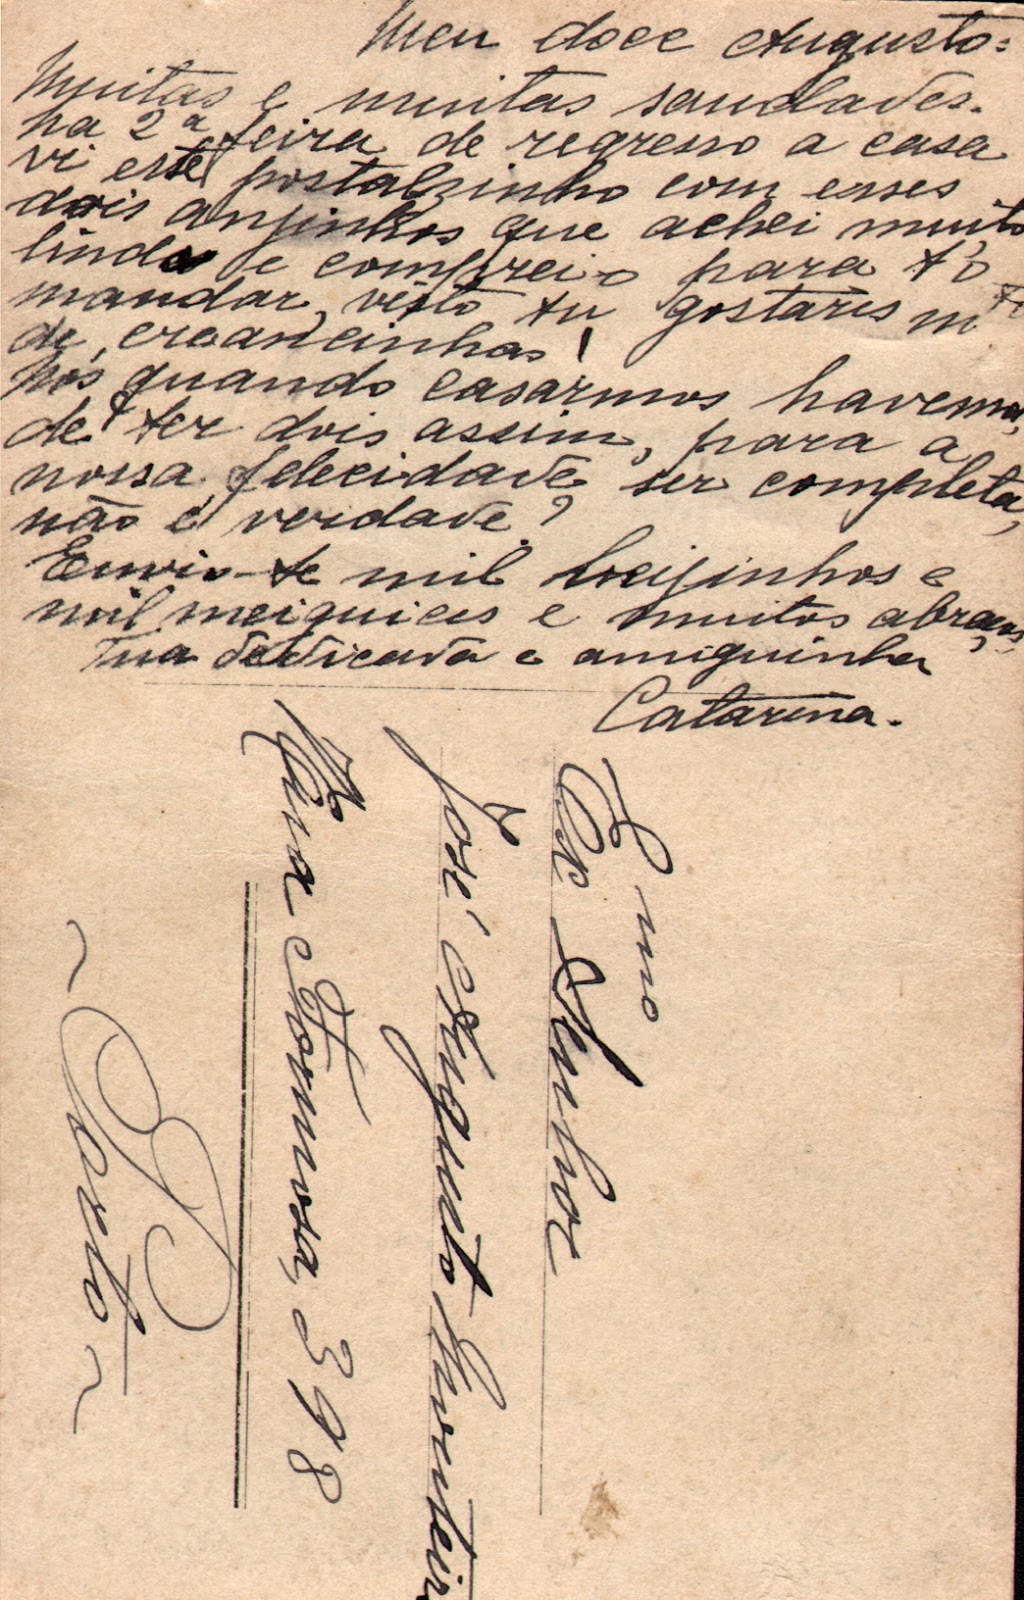 Meu doce Augusto:
Muitas e muitas saudades.
Na 2ª feira de regresso a casa
vi este postalzinho com esses
dois anjinhos que achei muito
lindo e comprei-o para t'o
mandar, visto tu gostares mto
de creancinhas!
Nós quando casarmos havemos,
de ter dois assim, para a
nossa felecidade ser completa,
não é verdade?
Envio-te mil beijinhos e
mil meiguices e muitos abraços
Tua dedicada e amiguinha
Catarina.
Exmo Senhor
José Augusto Monteiro
Rua Formosa, 398
~ Porto ~